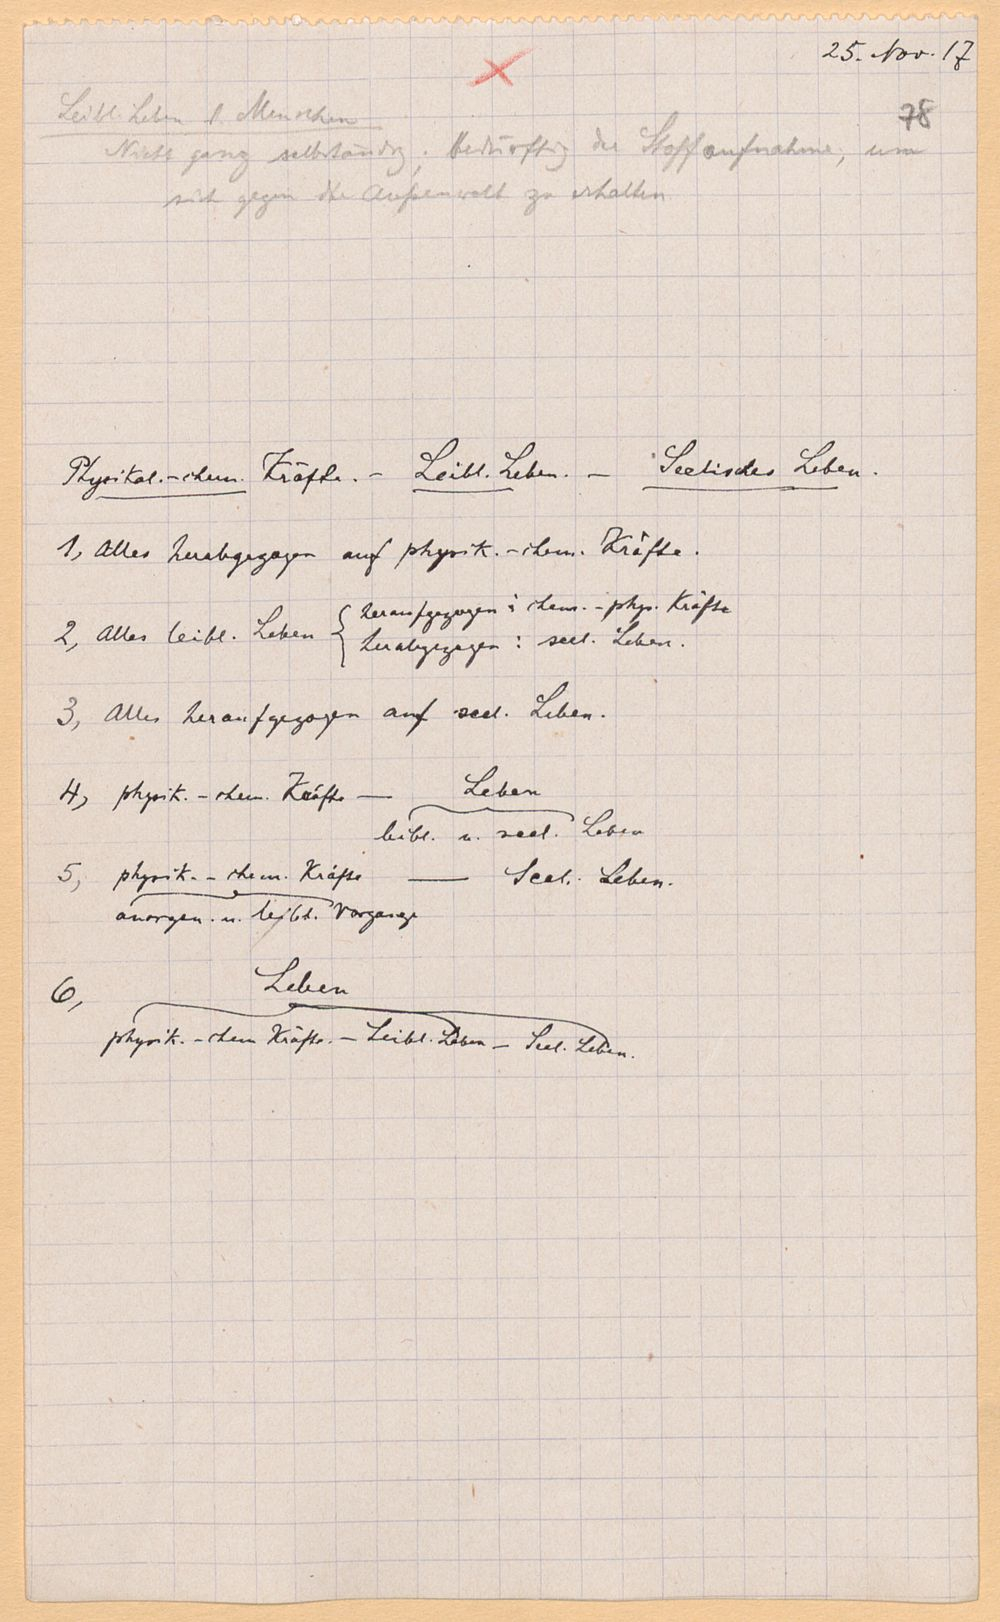 25. Nov. 17
78
Leibl. Leben d. Menschen
Nicht ganz selbständig; bedürftig der Stoffaufnahme, um
sich gegen die Außenwelt zu erhalten
Physikal.-chem. Kräfte. - Leibl. Leben. - Seelisches Leben.
1, Alles herabgezogen auf physik.-chem. Kräfte.
2, Alles leibl. Leben { heraufgezogen: chem.-phys. Kräfte
herabgezogen: seel. Leben.
3, Alles heraufgezogen auf seel. Leben.
4, physik.-chem. Kräfte — Leben
leibl. u. seel. Leben
5, physik.-chem. Kräfte — Seel. Leben.
anorgan. u. leibl. Vorgänge
6, Leben
physik.-chem Kräfte. - Leibl. Leben - Seel. Leben.